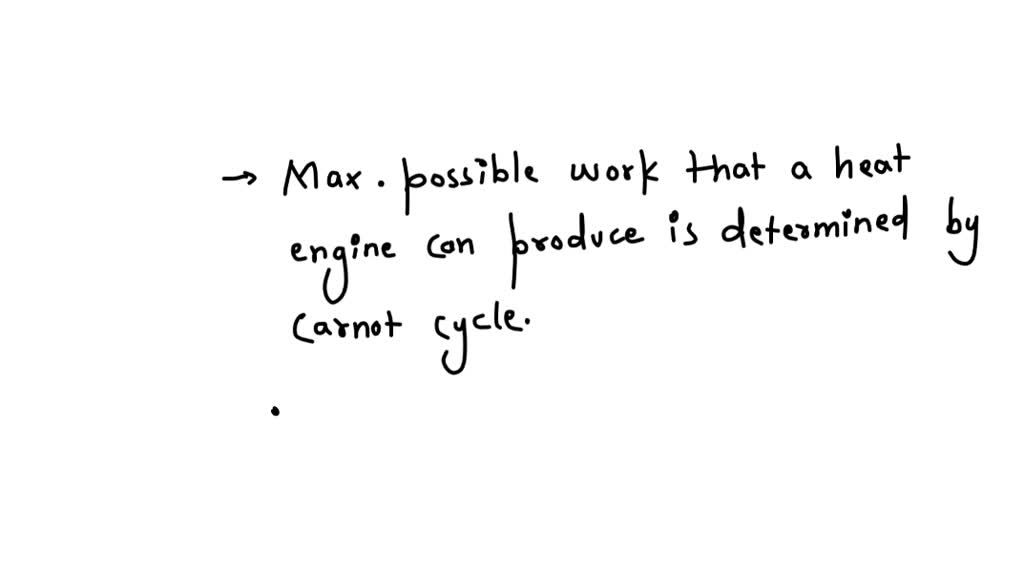 → Max. possible work that a heat
engine can produce is determined by
Carnot cycle.